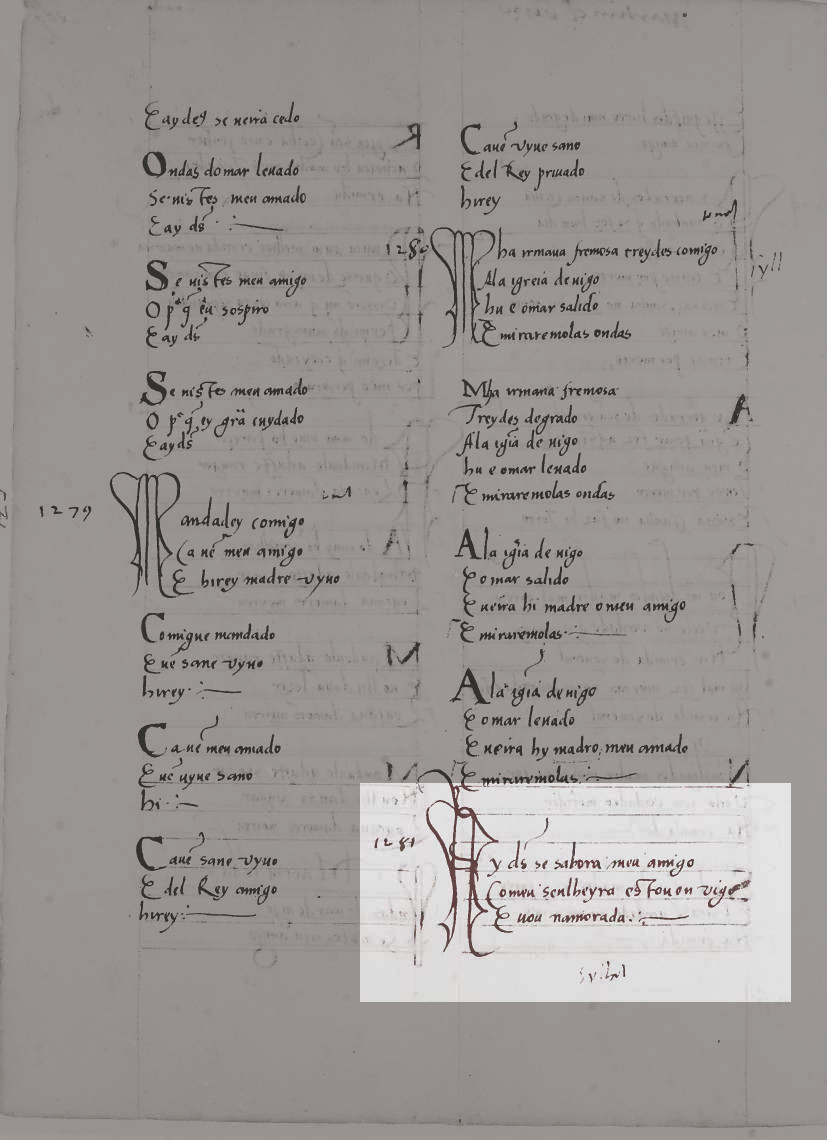 Eay deꝯ se ueira cedo
Ondas do mar leuado
Se uistes meu amado
Eay ds
Se uistes meu amigo
O pʳ q̄ eu sospiro
Eay ds
Se uistes meu amado
O pʳ q̄ ey grã cuydado
Eay ds
1279
Mandadey comigo
Ca uē meu amigo
E hirey madre vyuo
Comigue mandado
Euē sane vyuo
hirey
Ca uē meu amado
Euē uyue sano
hi
Ca uē sane vyuo
E del Rey amigo
hirey
Ca uē vyue sano
E del Rey priuado
hirey
1280
Mha irmana fremosa treydes comigo
Ala igreia de uigo
hu e o mar salido
E miraremolas ondas
Mha irmana fremosa
Treydes de grado
Ala igīa de uigo
hu e o mar leuado
E miraremolas ondas
Ala igīa de uigo
E o mar salido
E ueira hi madre o meu amigo
E miraremolas
Ala igīa de uigo
E o mar leuado
E ueira hy madre, meu amado
E miraremolas
1281
Ay ds se sabora meu amigo
Comeu senlheyra estou en vigo
E uou namorada